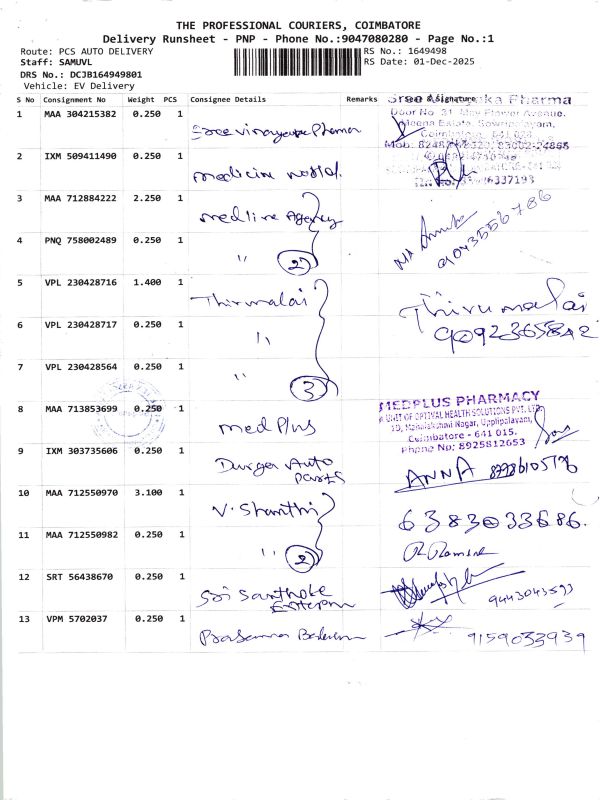 THE PROFESSIONAL COURIERS, COIMBATORE
Delivery Runsheet - PNP - Phone No.:9047080280 - Page No.:1
Route: PCS AUTO DELIVERY
Staff: SAMUVL
DRS No.: DCJB164949801
Vehicle: EV Delivery
RS No.: 1649498
RS Date: 01-Dec-2025
S No Consignment No Weight PCS Consignee Details Remarks & Signature
1 MAA 304215382 0.250 1
Pharma
Door No 31 May Flower Avenue,
Coimbatore
2 IXM 509411490 0.250 1 medicine world.
3 MAA 712884222 2.250 1 medline Agency
4 PNQ 758002489 0.250 1 " 2
9043556786
5 VPL 230428716 1.400 1 Thirmalai Thirumalai
6 VPL 230428717 0.250 1 "
7 VPL 230428564 0.250 1 " 3
8 MAA 713853699 0.250 1 med Plus
MEDPLUS PHARMACY
A UNIT OF OPTIVAL HEALTH SOLUTIONS PVT. LTD.
Mahalakshmi Nagar, Upplipalayam,
Coimbatore - 641 015.
Phone No: 8925812653
9 IXM 303735606 0.250 1 Durga Auto Parts ANNA
10 MAA 712550970 3.100 1 V. Shanthi 6383033686.
11 MAA 712550982 0.250 1 " 2
12 SRT 56438670 0.250 1 Sri Santhoke 9443043593
13 VPM 5702037 0.250 1 Prasanna 9159033939